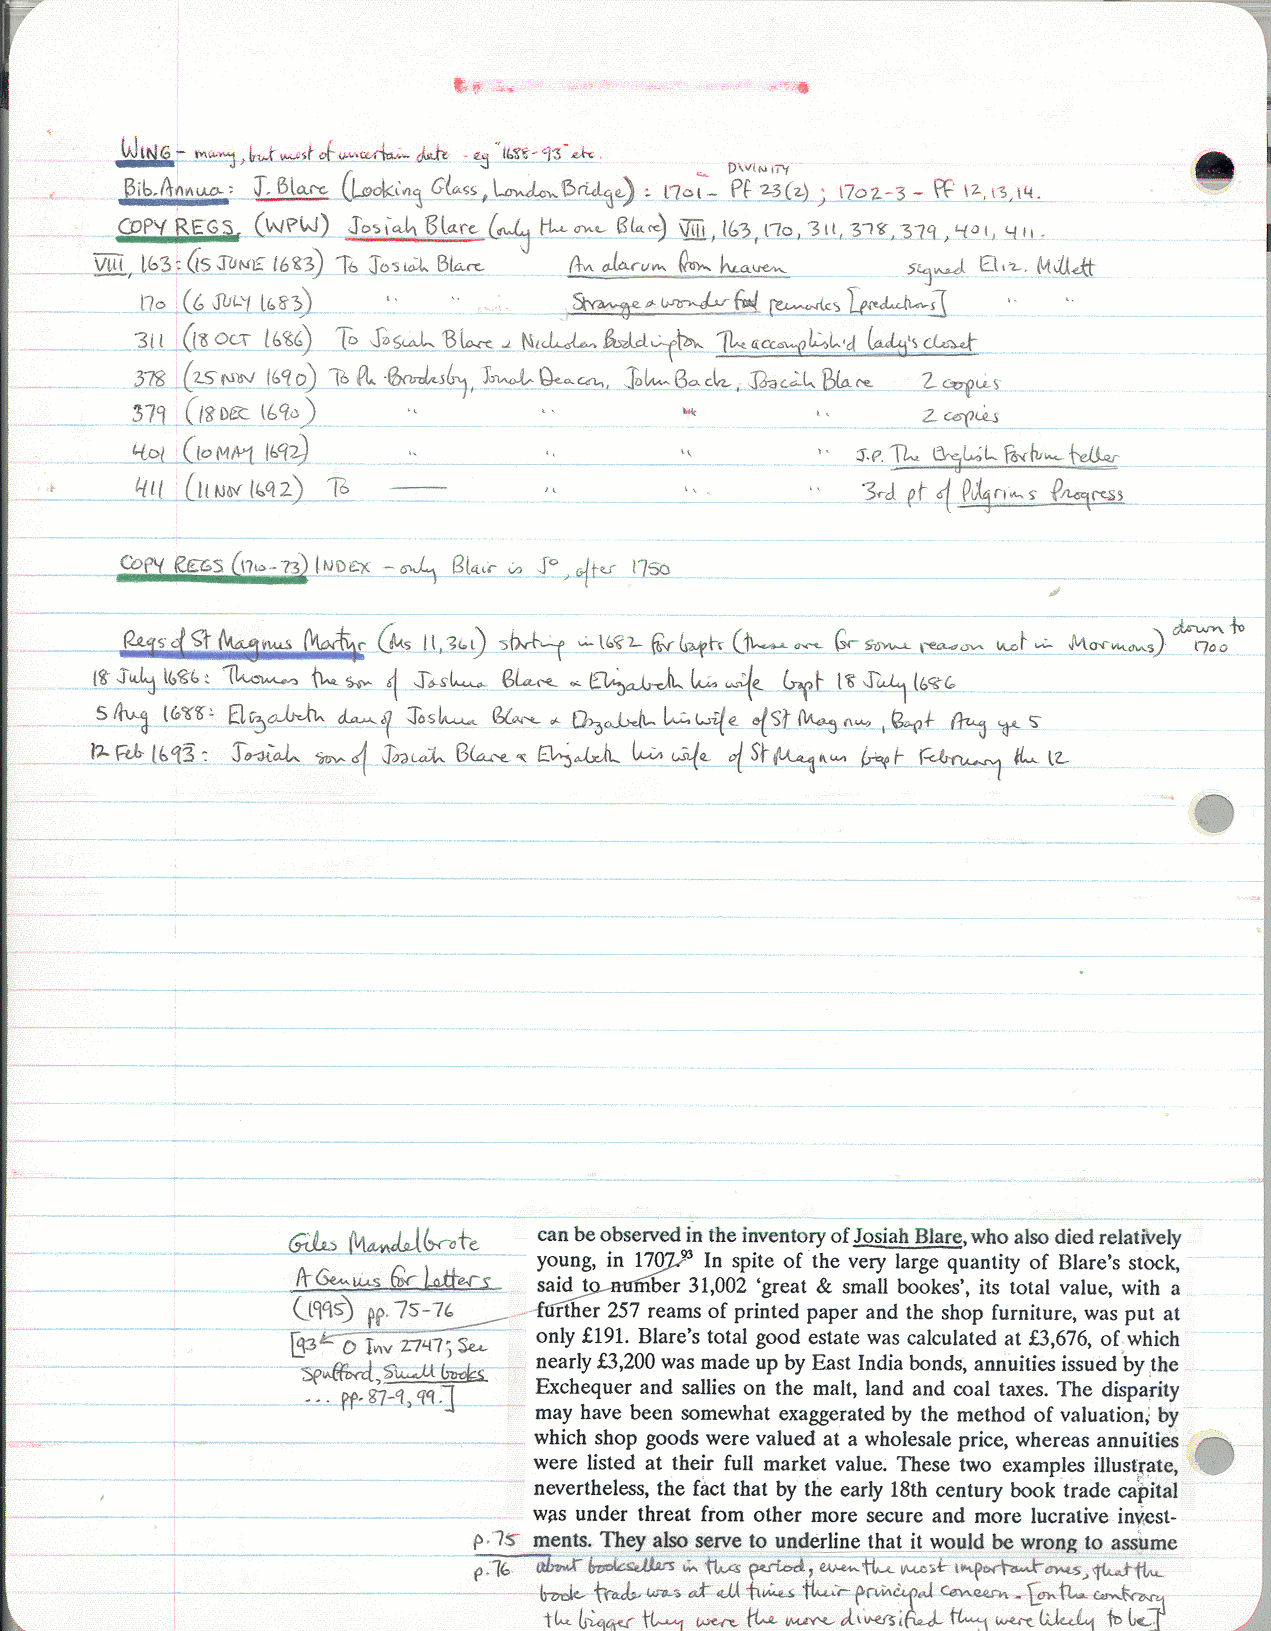 WING - many, but most of uncertain date - eg "1688-93" etc.
DIVINITY
Bib. Annua: J. Blare (Looking Glass, London Bridge): 1701 - Pf 23(2); 1702-3 - Pf 12, 13, 14.
COPY REGS. (WPW) Josiah Blare (only the one Blare) VIII, 163, 170, 311, 378, 379, 401, 411.
VIII, 163: (15 JUNE 1683) To Josiah Blare An alarum from heaven signed Eliz. Millett
170 (6 JULY 1683) " " Strange & wonderful remarks [predictions] " "
311 (18 OCT 1686) To Josiah Blare & Nicholas Boddington The accomplish'd lady's closet
378 (25 NOV 1690) To Ph. Brooksby, Jonah Deacon, John Back, Josiah Blare 2 copies
379 (18 DEC 1690) " " " " 2 copies
401 (10 MAY 1692) " " " " J.P. The English Fortune teller
411 (11 NOV 1692) To — " " " 3rd pt of Pilgrims Progress
COPY REGS (1710-73) INDEX - only Blair is Jo, after 1750
Regs of St Magnus Martyr (Ms 11,361) starting in 1682 for bapts (these are for some reason not in Mormons) down to 1700
18 July 1686: Thomas the son of Joshua Blare & Elizabeth his wife bapt 18 July 1686
5 Aug 1688: Elizabeth dau of Joshua Blare & Elizabeth his wife of St Magnus, Bapt Aug ye 5
12 Feb 1693: Josiah son of Josiah Blare & Elizabeth his wife of St Magnus bapt February the 12
Giles Mandelbrote
A Genius for Letters
(1995) pp. 75-76
[93 O Inv 2747; See
Spufford, Small books
... pp. 87-9, 99.]
can be observed in the inventory of Josiah Blare, who also died relatively
young, in 1707.93 In spite of the very large quantity of Blare's stock,
said to number 31,002 'great & small bookes', its total value, with a
further 257 reams of printed paper and the shop furniture, was put at
only £191. Blare's total good estate was calculated at £3,676, of which
nearly £3,200 was made up by East India bonds, annuities issued by the
Exchequer and sallies on the malt, land and coal taxes. The disparity
may have been somewhat exaggerated by the method of valuation, by
which shop goods were valued at a wholesale price, whereas annuities
were listed at their full market value. These two examples illustrate,
nevertheless, the fact that by the early 18th century book trade capital
was under threat from other more secure and more lucrative invest-
p.75 ments. They also serve to underline that it would be wrong to assume
p.76 about booksellers in this period, even the most important ones, that the
book trade was at all times their principal concern. [on the contrary
the bigger they were the more diversified they were likely to be]